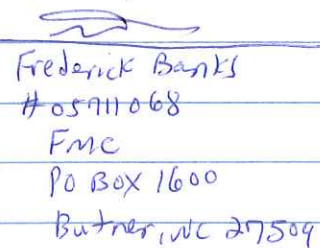 Frederick Banks
#05711068
FMC
PO BOX 1600
Butner, NC 27509